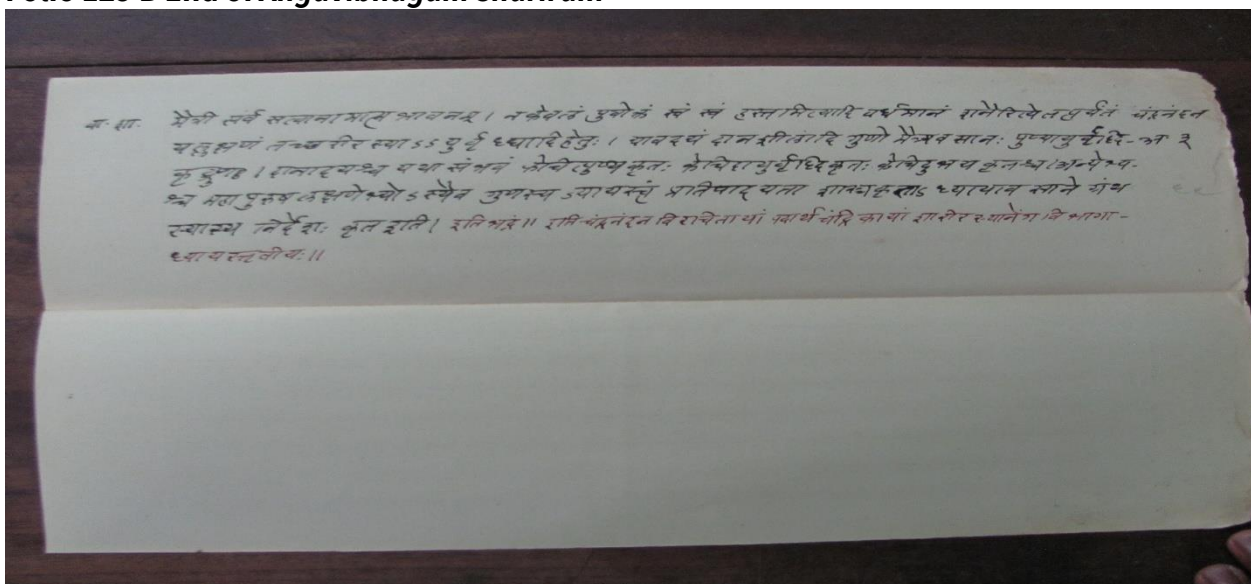 वा. शा. मैत्री सर्व सत्वानामात्म भावनम् । न केवलं पुर्वोक्तं स्वं स्वं हस्तमित्यादि वर्धमानं शनैरित्येतत्पर्यंतं चंद्रनंदन
यल्लक्षणं तच्छरीरस्याऽऽयुर्वृध्यादिहेतुः । यावदयं दानशीलादि गुणो मैत्र्यवसानः पुण्यायुर्वृद्धि- अ ३
कृद्गुणः । दानादयश्च यथा संभवं केचित्पुण्यकृतः केचिदायुर्वृद्धिकृतः केचिदुभय कृतश्च । अन्येभ्य-
श्च महा पुरुष लक्षणेभ्योऽस्यैव गुणस्य ज्यायस्त्वं प्रतिपादयता शास्त्रकृताऽध्यायावसाने ग्रंथ
स्यास्य निर्देशः कृत इति । इतिभद्रं ॥ इति चंद्रनंदन विरचितायां पदार्थ चंद्रिकायां शारीर स्थानेंग विभागा-
ध्यायस्तृतीयः ॥